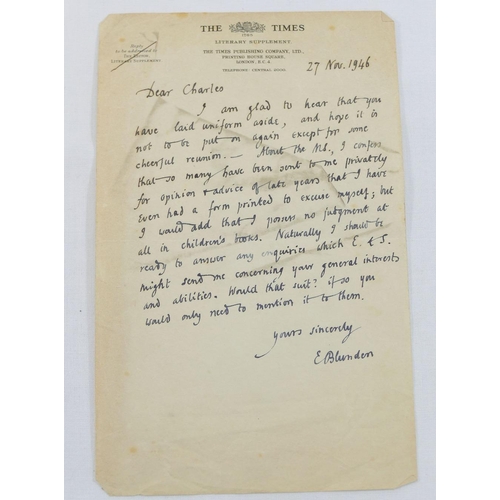 THE TIMES
1785
LITERARY SUPPLEMENT
Reply
to be addressed to
The Editor,
LITERARY SUPPLEMENT
THE TIMES PUBLISHING COMPANY, LTD.,
PRINTING HOUSE SQUARE,
LONDON, E.C.4.
TELEPHONE: CENTRAL
27 Nov. 1946
Dear Charles
I am glad to hear that you
have laid uniform aside, and hope it is
not to be put on again except for some
cheerful reunion. — About the MS., I confess
that so many have been sent to me privately
for opinion & advice of late years that I have
even had a form printed to excuse myself; but
I would add that I possess no judgment at
all in children's books. Naturally I should be
ready to answer any enquiries which E. & S.
might send me concerning your general interests
and abilities. Would that suit? if so you
would only need to mention it to them.
Yours sincerely
E Blunden